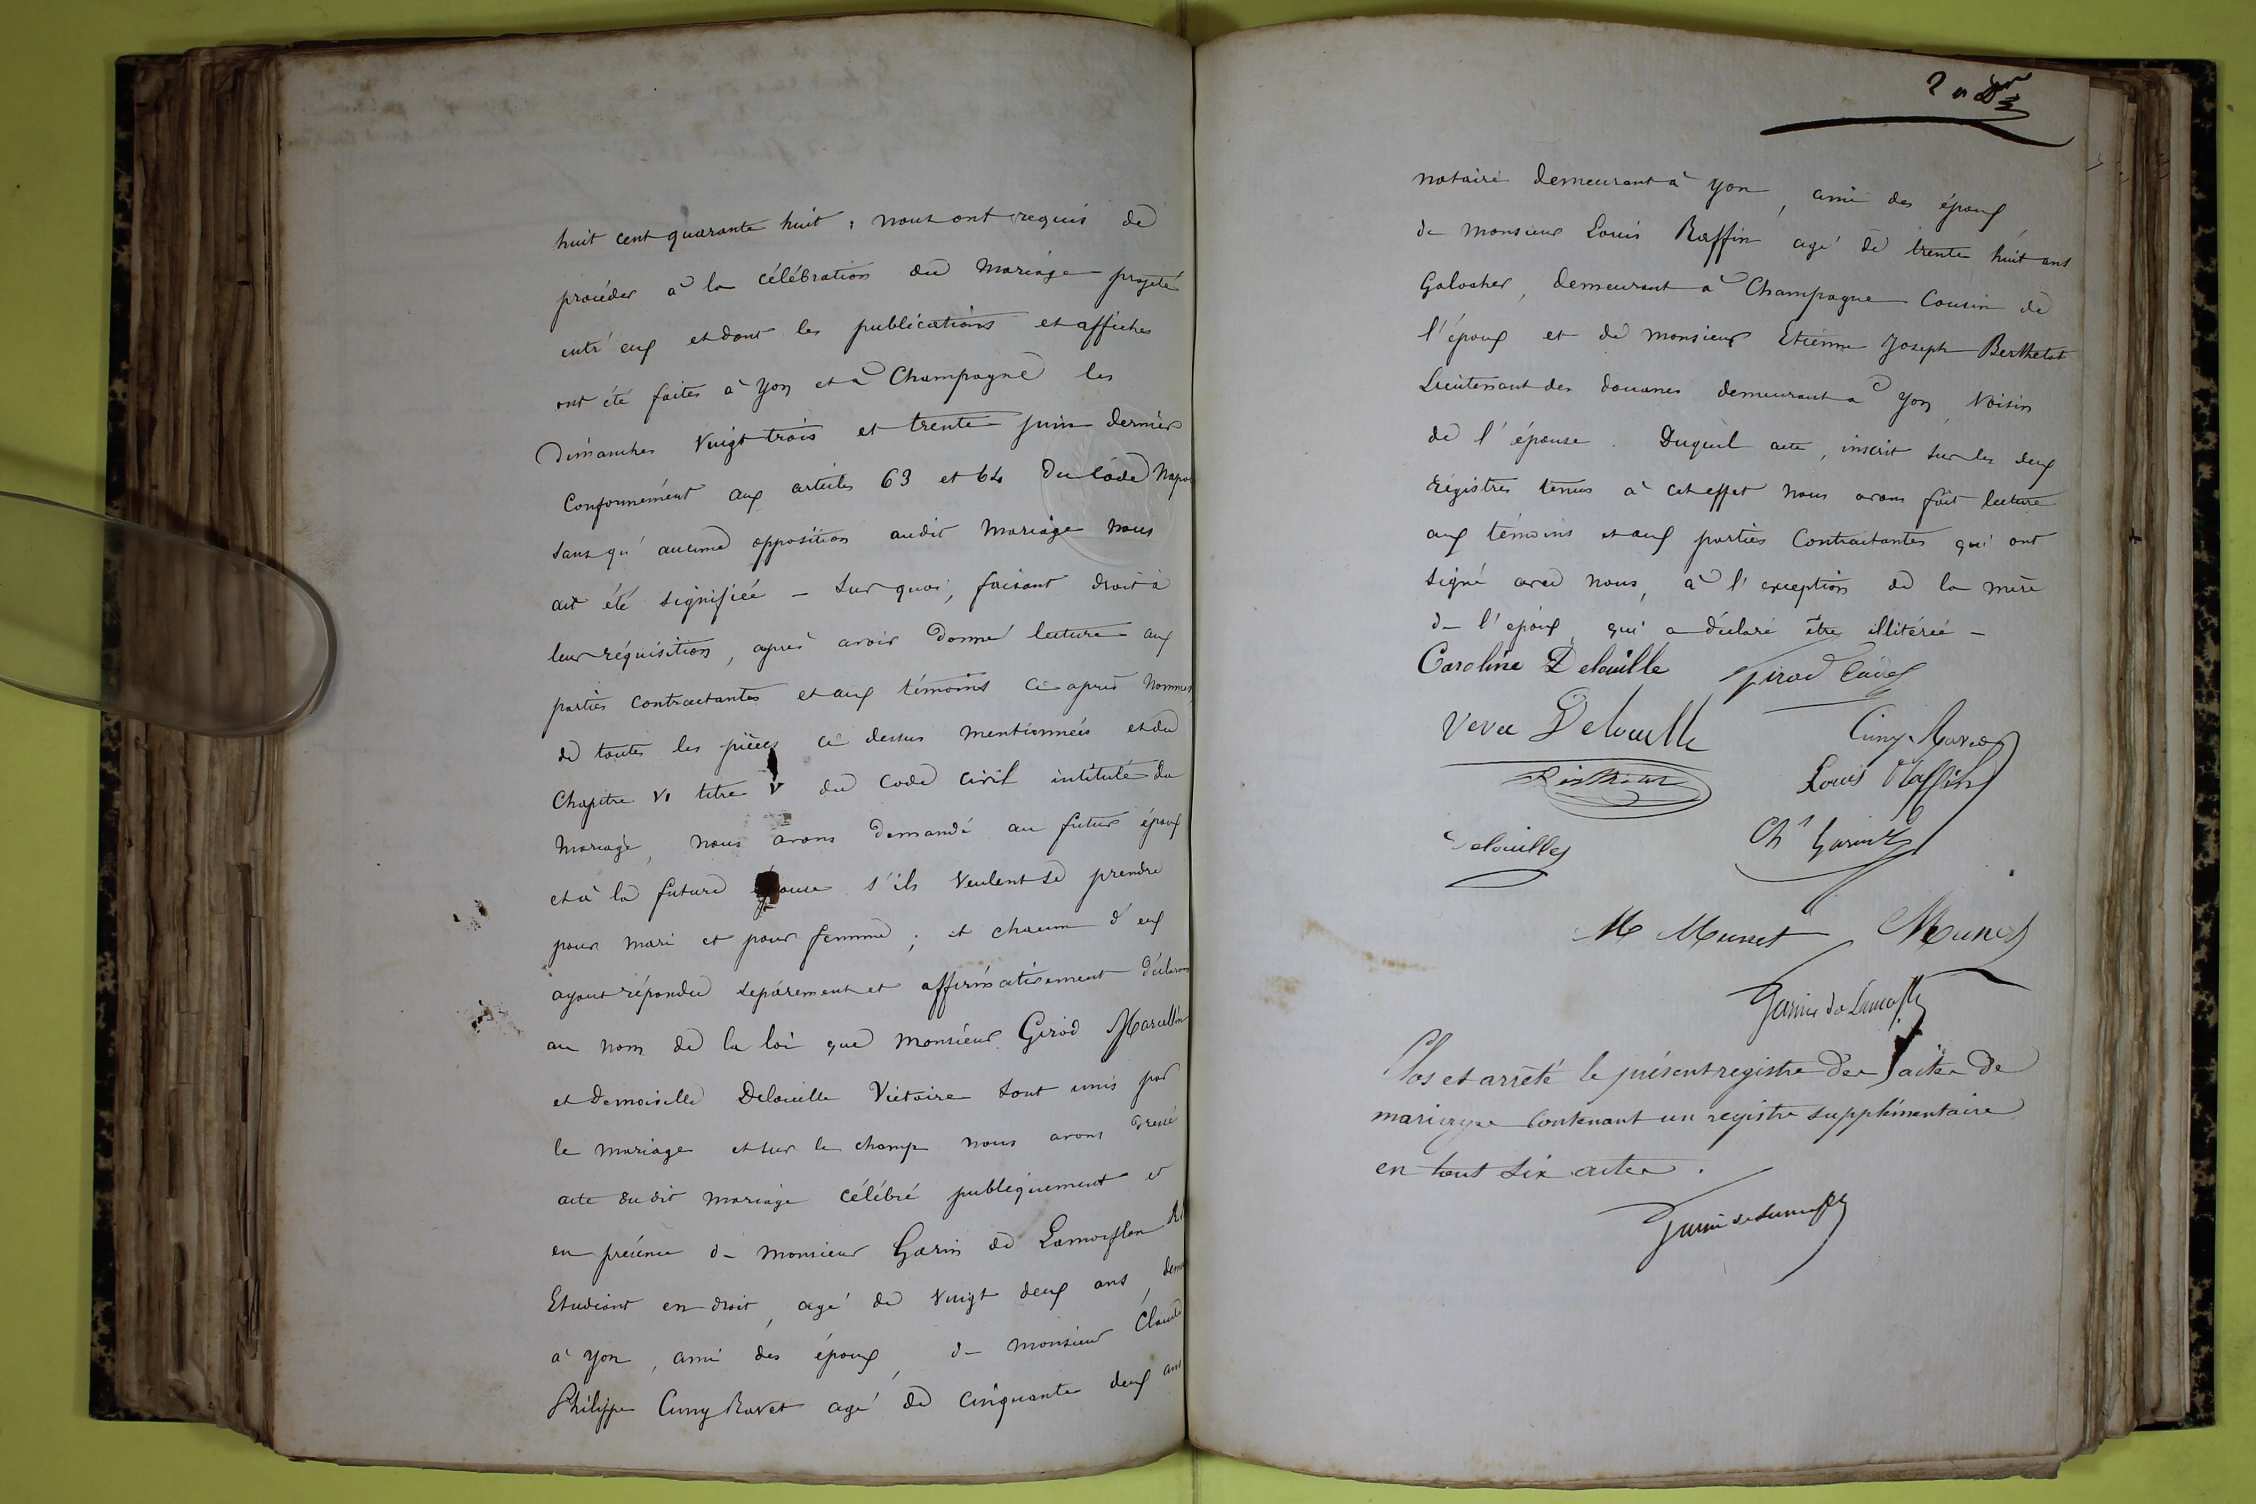 huit cent quarante huit ; nous ont requis de
procéder à la célébration du mariage projeté
entr'eux et dont les publications et affiches
ont été faites à Yon et à Champagne les
Dimanches vingt trois et trente juin dernier
Conformément aux articles 63 et 64 du Code Napol
sans qu'aucune opposition audit mariage nous
ait été signifiée — Sur quoi, faisant droit à
leur réquisition, après avoir donné lecture aux
parties contractantes et aux témoins ci après nommés
de toutes les pièces ci dessus mentionnées et du
Chapitre VI titre V du Code Civil intitulé du
Mariage, nous avons demandé au futur époux
et à la future épouse s'ils veulent se prendre
pour mari et pour femme ; et chacun d'eux
ayant répondu séparément et affirmativement déclarons
au nom de la loi que monsieur Girod Marcellin
et Demoiselle Delouille Victoire sont unis par
le mariage et sur le champ nous avons dressé
acte du dit mariage célébré publiquement et
en présence de monsieur Garin de Lamorflan
Etudiant en droit, agé de vingt deux ans, demeu
à Yon, ami des époux, de monsieur Claude
Philippe Cuny Ravet agé de cinquante deux ans
notaire demeurant à Yon, ami des époux
de monsieur Louis Raffin agé de trente huit ans
Galocher, demeurant à Champagne Cousin de
l'époux et de monsieur Etienne Joseph Berthelot
Lieutenant des douanes demeurant à Yon, Voisin
de l'épouse. Duquel acte, inscrit sur les deux
régistres tenus à cet effet nous avons fait lecture
aux témoins et aux parties Contractantes qui ont
signé avec nous, à l'exception de la mère
de l'époux, qui a déclaré être illitérée —
Caroline Delouille Girod Cadet
Veve Delouille Cuny Ravet
Louis Raffin
Delouille Ch Garin
M Munet Munet
Garin de Lamorfl
Clos et arrêté le présent registre des actes de
mariage contenant un registre supplémentaire
en tout six actes.
Garin de Lamorfl